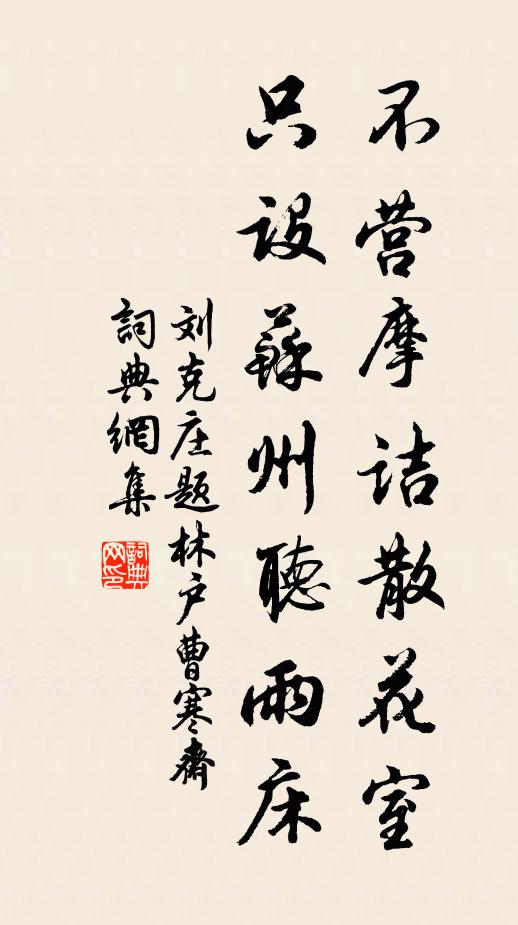 不营摩诘散花室
只设蘇州聴雨床
刘克庄题林户曹寒齋
詞典網集
詞典网印